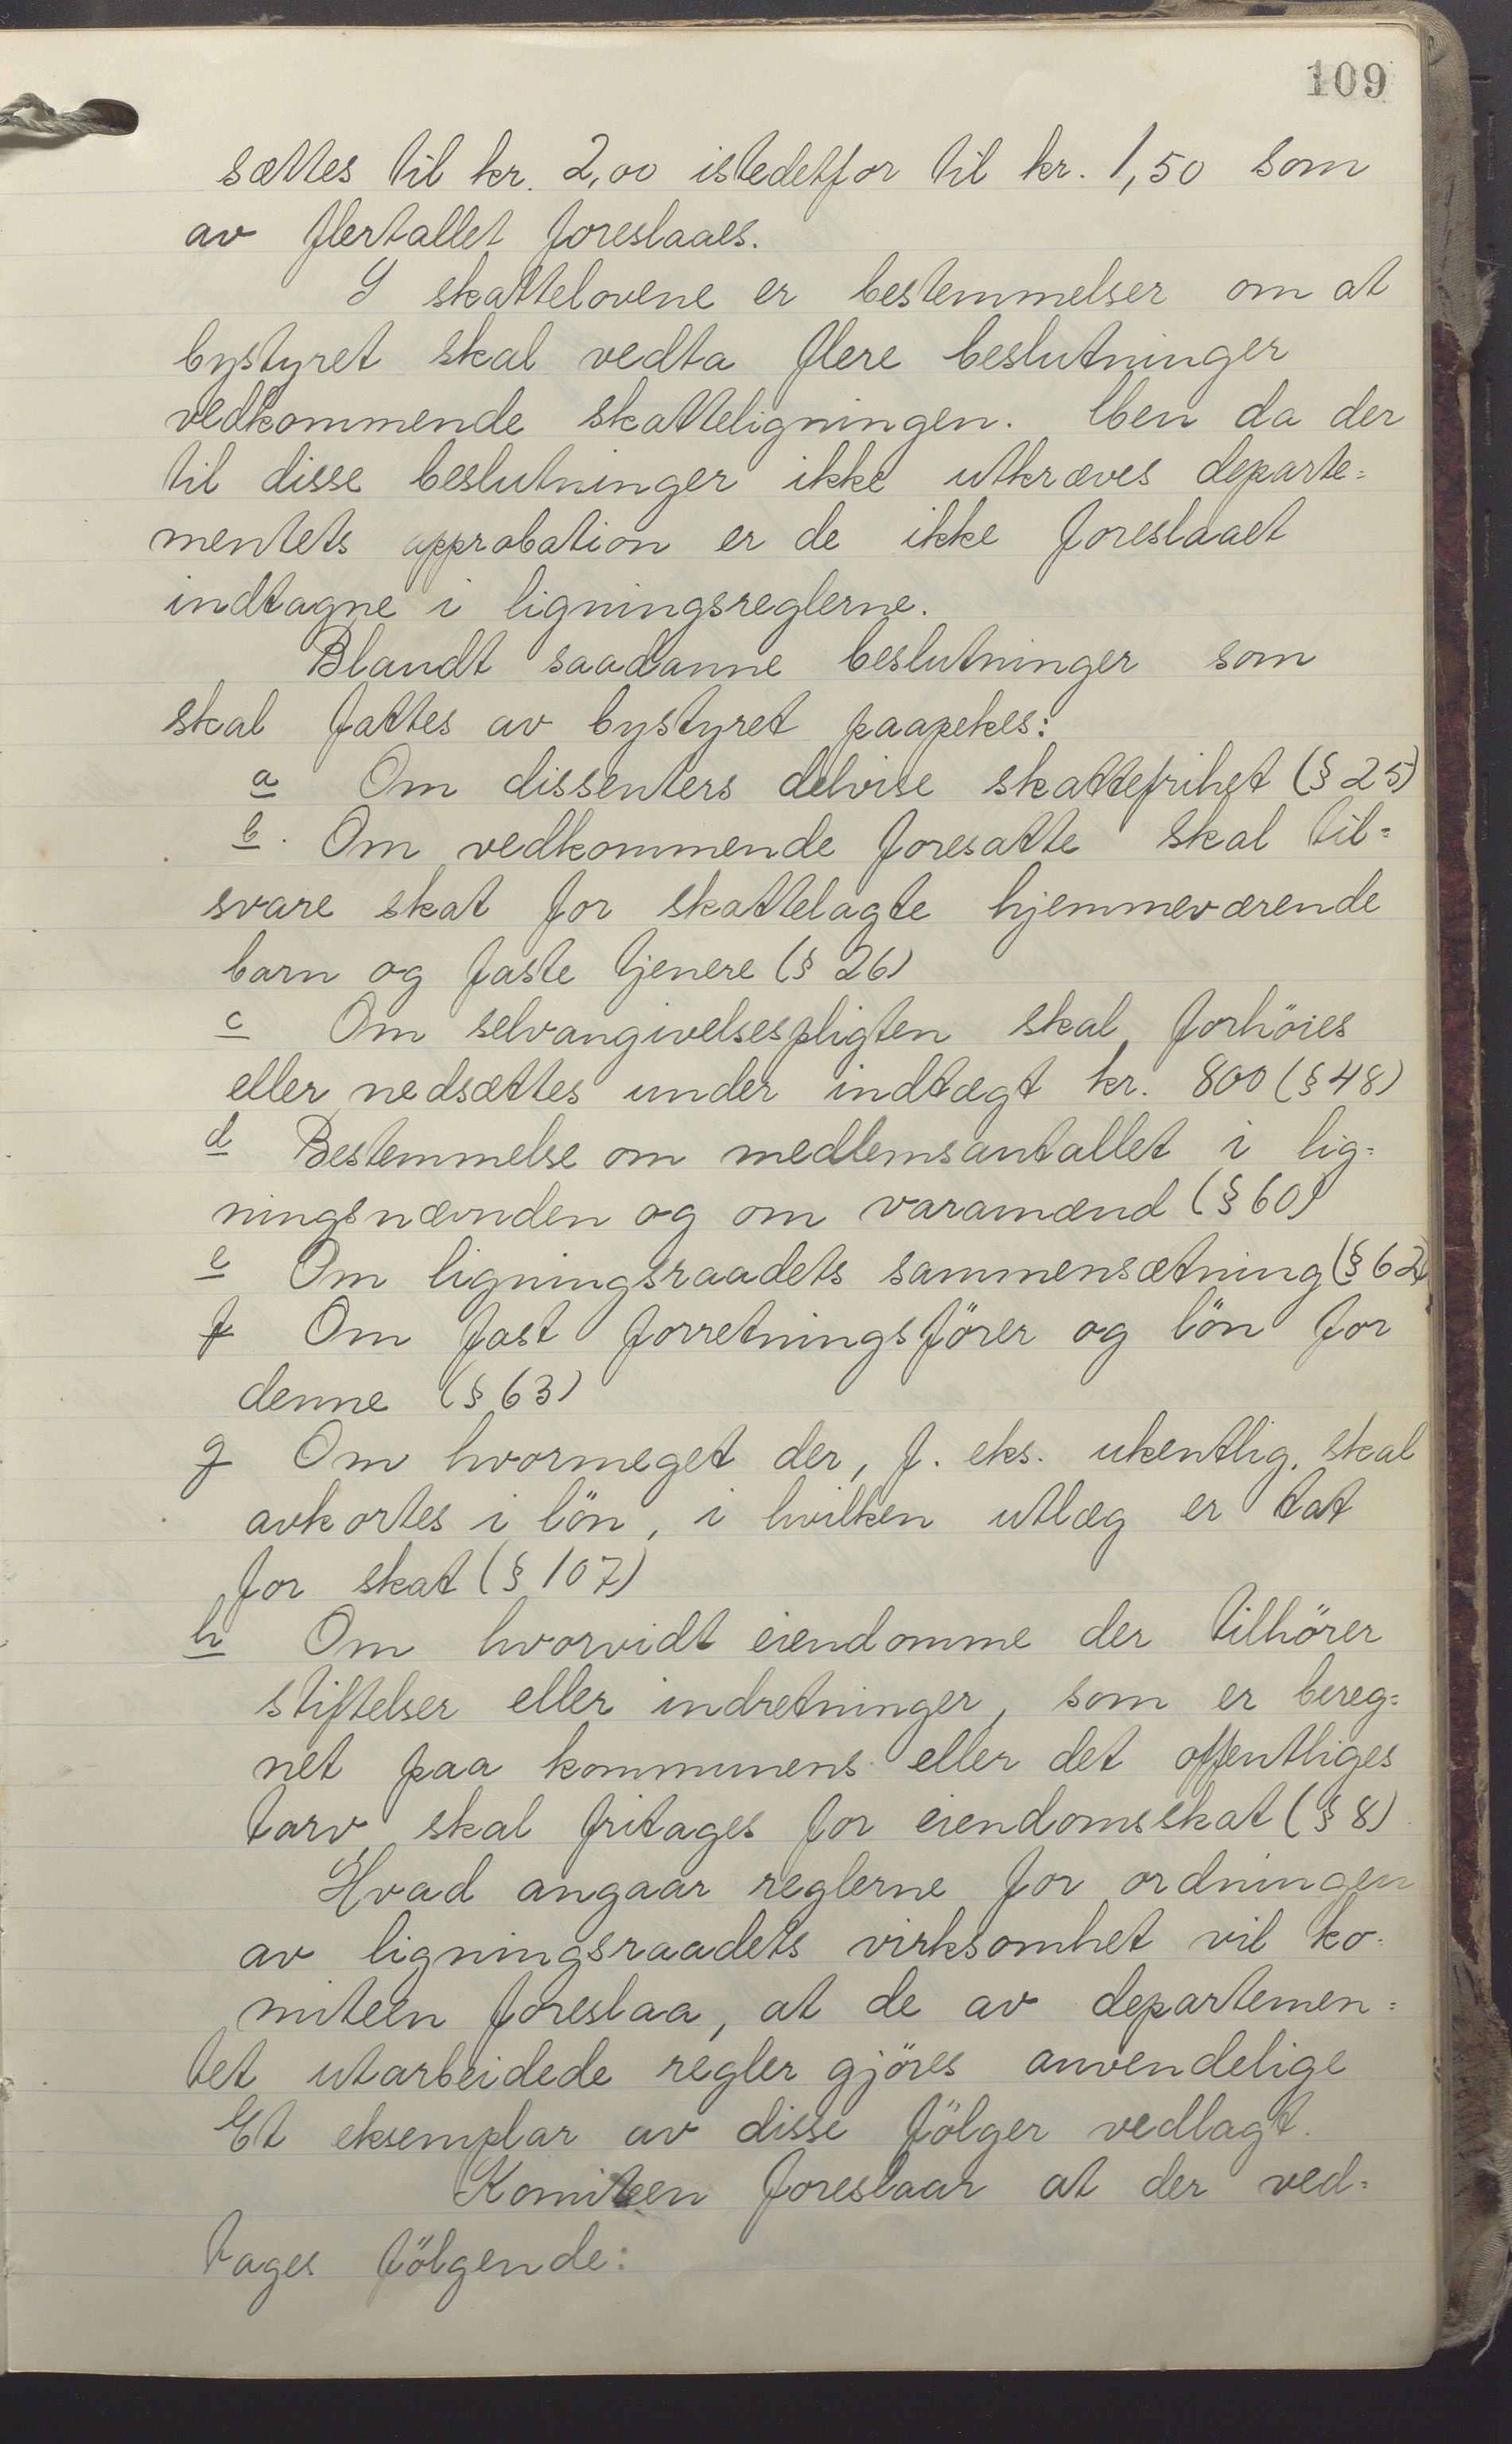 109
sættes til kr. 2,00 istedetfor til kr. 1,50 som
av flertallet foreslaaes.
I skattelovene er bestemmelser om at
bystyret skal vedta flere beslutninger
vedkommende skatteligningen. Men da der
til disse beslutninger ikke utkræves departe=
mentets approbation er de ikke foreslaaet
indtagne i ligningsreglerne.
Blandt saadanne beslutninger som
skal fattes av bystyret paapekes:
a Om dissenters delvise skattefrihet (§ 25)
b. Om vedkommende foresatte skal til=
svare skat for skattelagte hjemmeværende
barn og faste tjenere (§ 26)
c Om selvangivelsespligten skal forhöies
eller nedsættes under indtægt kr. 800 (§ 48)
d Bestemmelse om medlemsantallet i lig=
ningsnævnden og om varamænd (§ 60)
e Om ligningsraadets sammensætning (§ 62)
f Om fast forretningsförer og lön for
denne (§ 63)
g Om hvormeget der, f. eks. ukentlig, skal
avkortes i lön, i hvilken utlæg er tat
for skat (§ 107)
h Om hvorvidt eiendomme der tilhörer
stiftelser eller indretninger, som er bereg=
net paa kommunens eller det offentliges
tarv skal fritages for eiendomsskat (§ 8)
Hvad angaar reglerne for ordningen
av ligningsraadets virksomhet vil ko=
miteen foreslaa, at de av departemen=
tet utarbeidede regler gjöres anvendelige
Et eksemplar av disse fölger vedlagt.
Komiteen foreslaar at der ved=
tages fölgende: